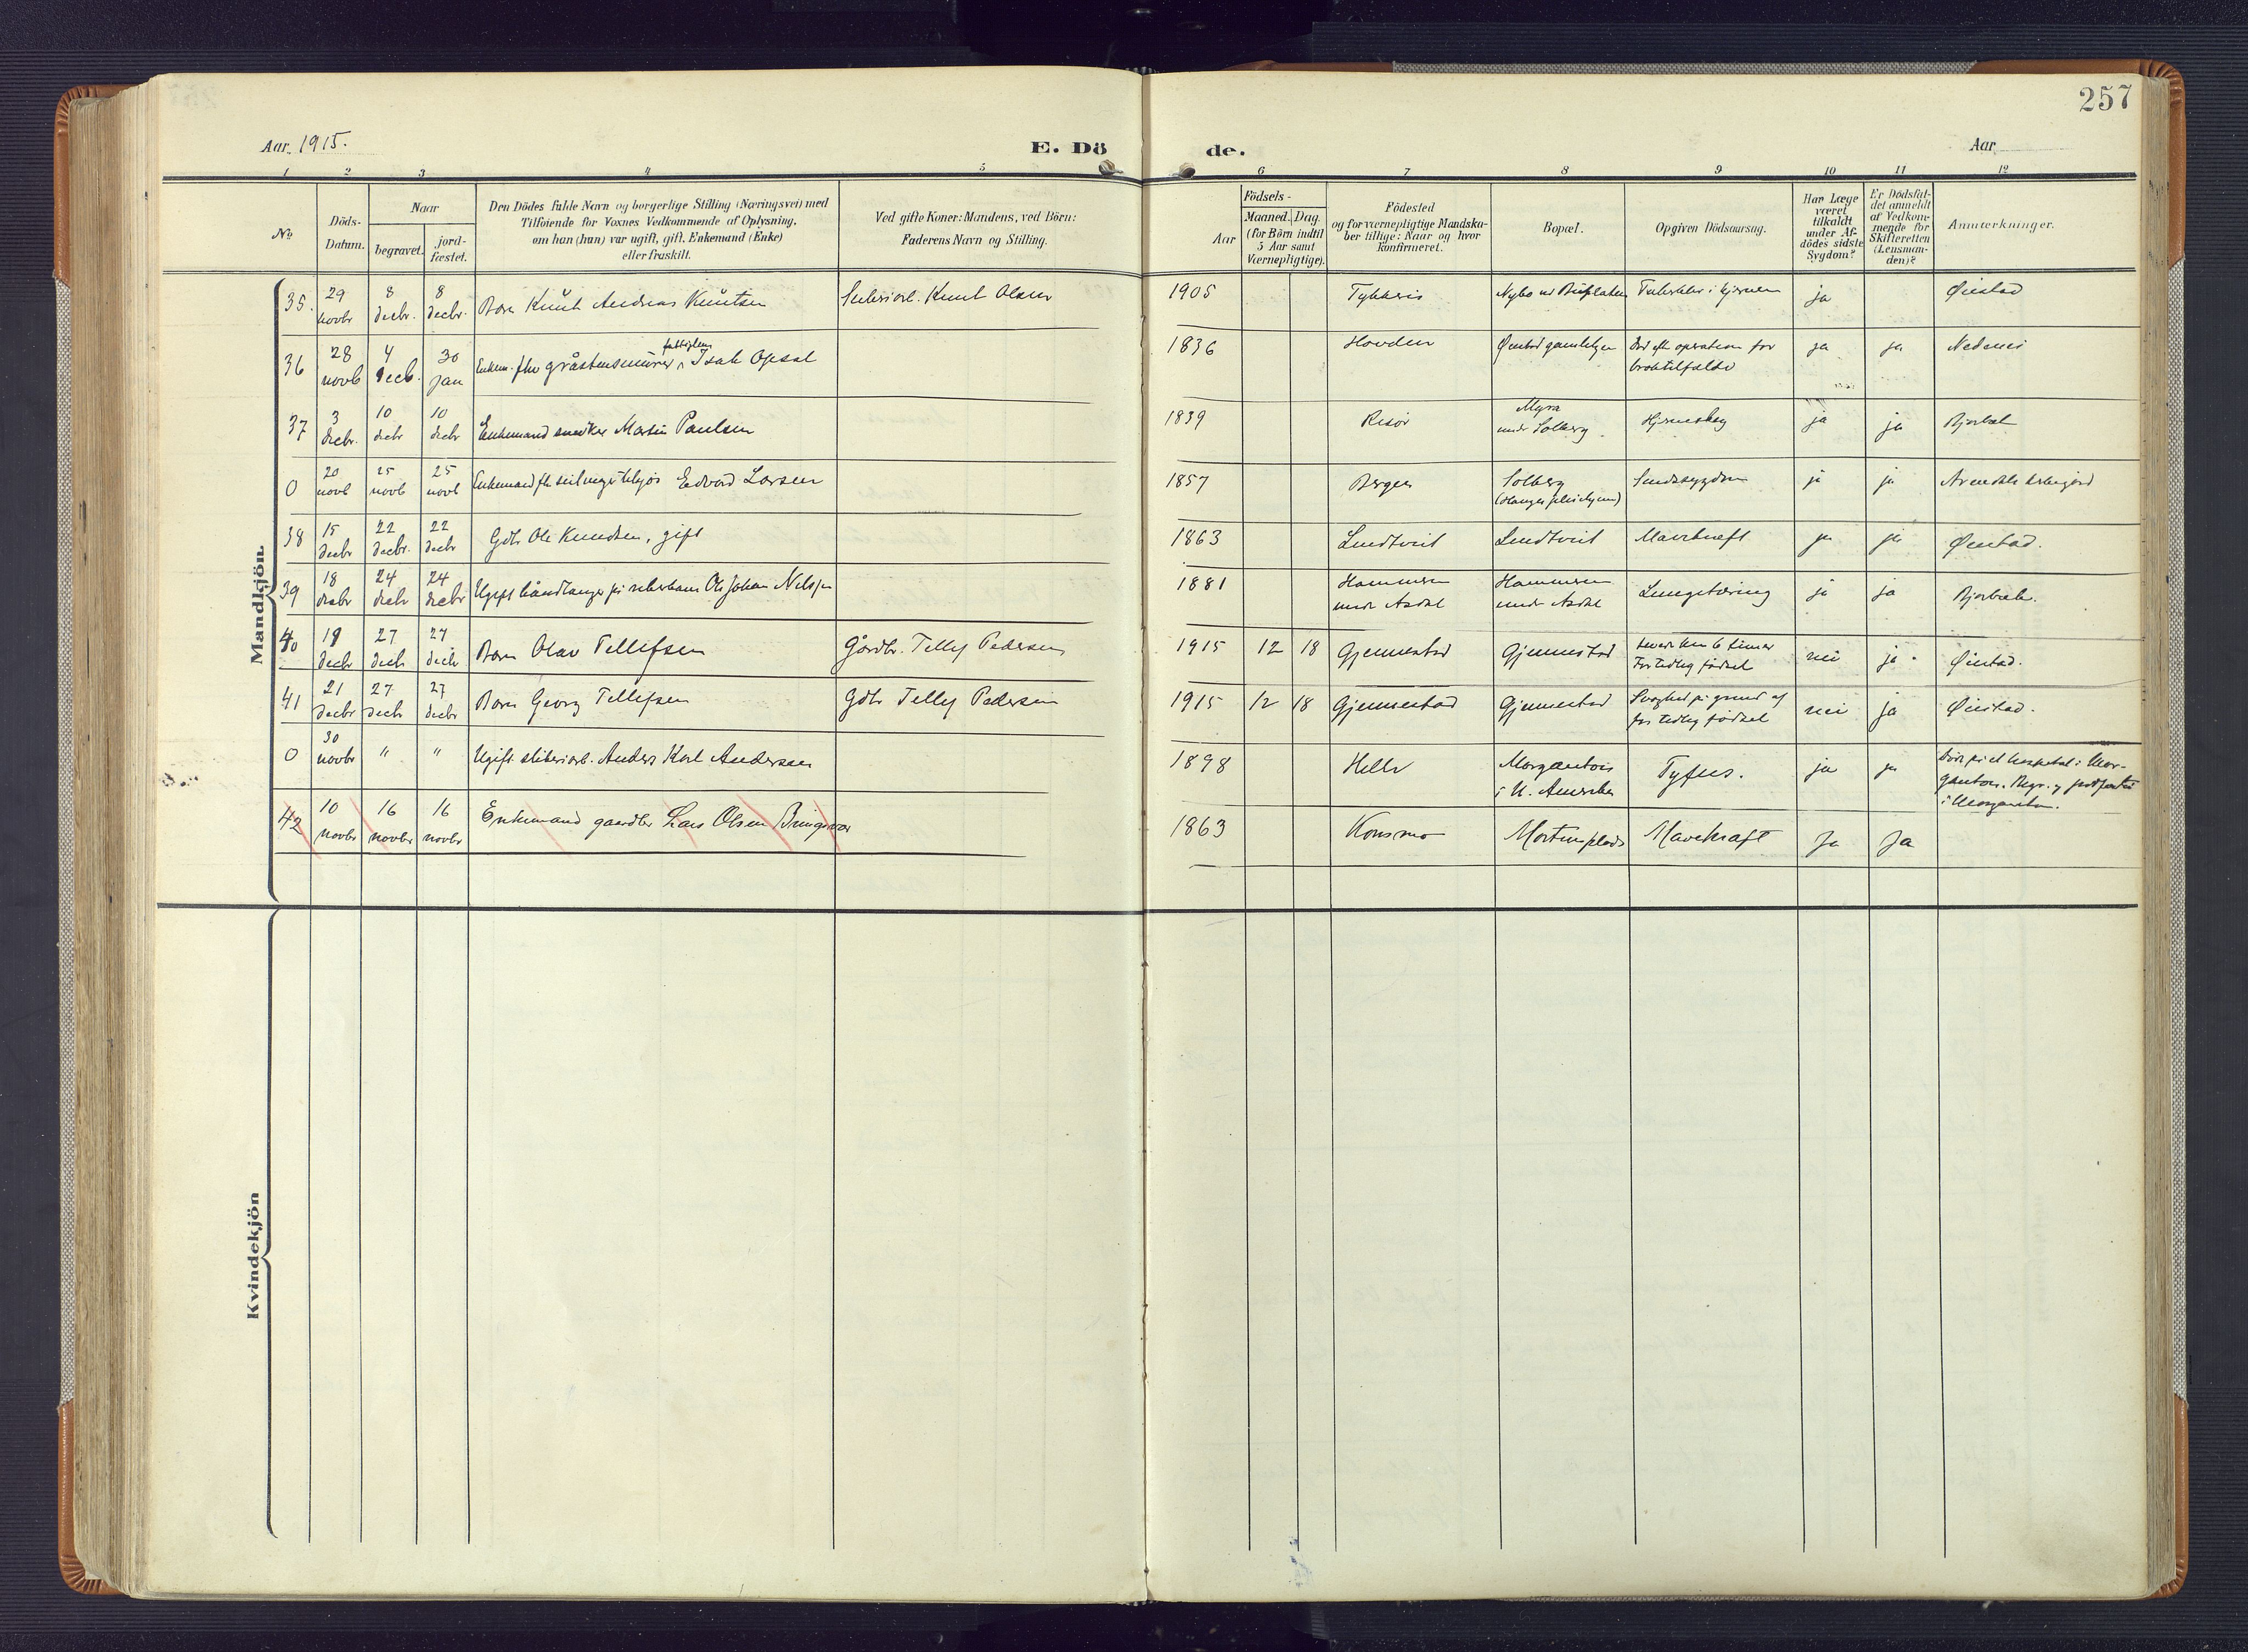 257
Aar 1915.
E. Dö
de.
Aar
1 2 3 4 5 6 7 8 9 10 11 12
No
Döds-
Datum.
Naar
begravet.
jord-
fæstet.
Den Dödes fulde Navn og borgerlige Stilling (Næringsvei) med
Tilföiende for Voxnes Vedkommende af Oplysning,
om han (hun) var ugift, gift, Enkemand (Enke)
eller fraskilt.
Ved gifte Koner: Mandens, ved Börn:
Faderens Navn og Stilling.
Födsels-
Aar
Maaned. Dag.
(for Börn indtil
5 Aar samt
Værnepligtige).
Födested
og for værnepligtige Mandska-
ber tillige: Naar og hvor
konfirmeret.
Bopæl.
Opgiven Dödsaarsag.
Har Læge
været
tilkaldt
under Af-
dödes sidste
Sygdom?
Er Dödsfal-
det anmeldt
af Vedkom-
mende for
Skifteretten
(Lensman-
den)?
Anmærkninger.
Mandkjön.
35. 29 novbr 8 decbr. 8 decbr. Barn Knut Andreas Knutsen Knut Olsen 1905 ja Øiestad
36 28 novb 4 decb. 30 jan Isak Opsal 1836 Hovden operation for ja ja Nedenes
37 3 decbr. 10 decbr 10 decbr Enkemand snedker Martin Paulsen 1839 Risör Myra
under Solberg ja ja Bjorbæk
0 20 novb 25 novb 25 novb Enkemand Edvard Larsen 1857 Bergen Solberg
Sindssygdom ja ja Arendals
38 15 decbr 22 decbr. 22 decbr Gdbr. Ole Knudsen, gift 1863 Lundtveit Lundtveit Mavekræft ja ja Øiestad.
39 18 decbr 24 decbr 24 decbr Ugift håndlanger på Ole Johan Nilsen 1881 Hammeren
under Asdal Hammeren
under Asdal Lungetæring ja ja Bjorbæk.
40 19 decbr 27 decbr 27 decbr Barn Olav Tellefsen Gårdbr. Tellef Pedersen 1915 12 18 Gjennestad Gjennestad Levet kun 6 timer
For tidlig födsel nei ja. Øiestad.
41 21 decbr 27 decbr 27 decbr Barn Georg Tellefsen Gdbr Tellef Pedersen 1915 12 18 Gjennestad Gjennestad Svaghed på grund af
for tidlig födsel nei ja Øiestad.
0 30 novbr " " Ugift sliberiarb. Anders Karl Andersen 1898 Helle
i N. Amerika Tyfus. ja ja Döde på et hospital i Mor-
42 10 novbr 16 novbr 16 novbr Enkemand gaardbr Lars Olsen Bringsvær 1863 Konsmo Mortensplads Mavekræft Ja Ja
Kvindekjön